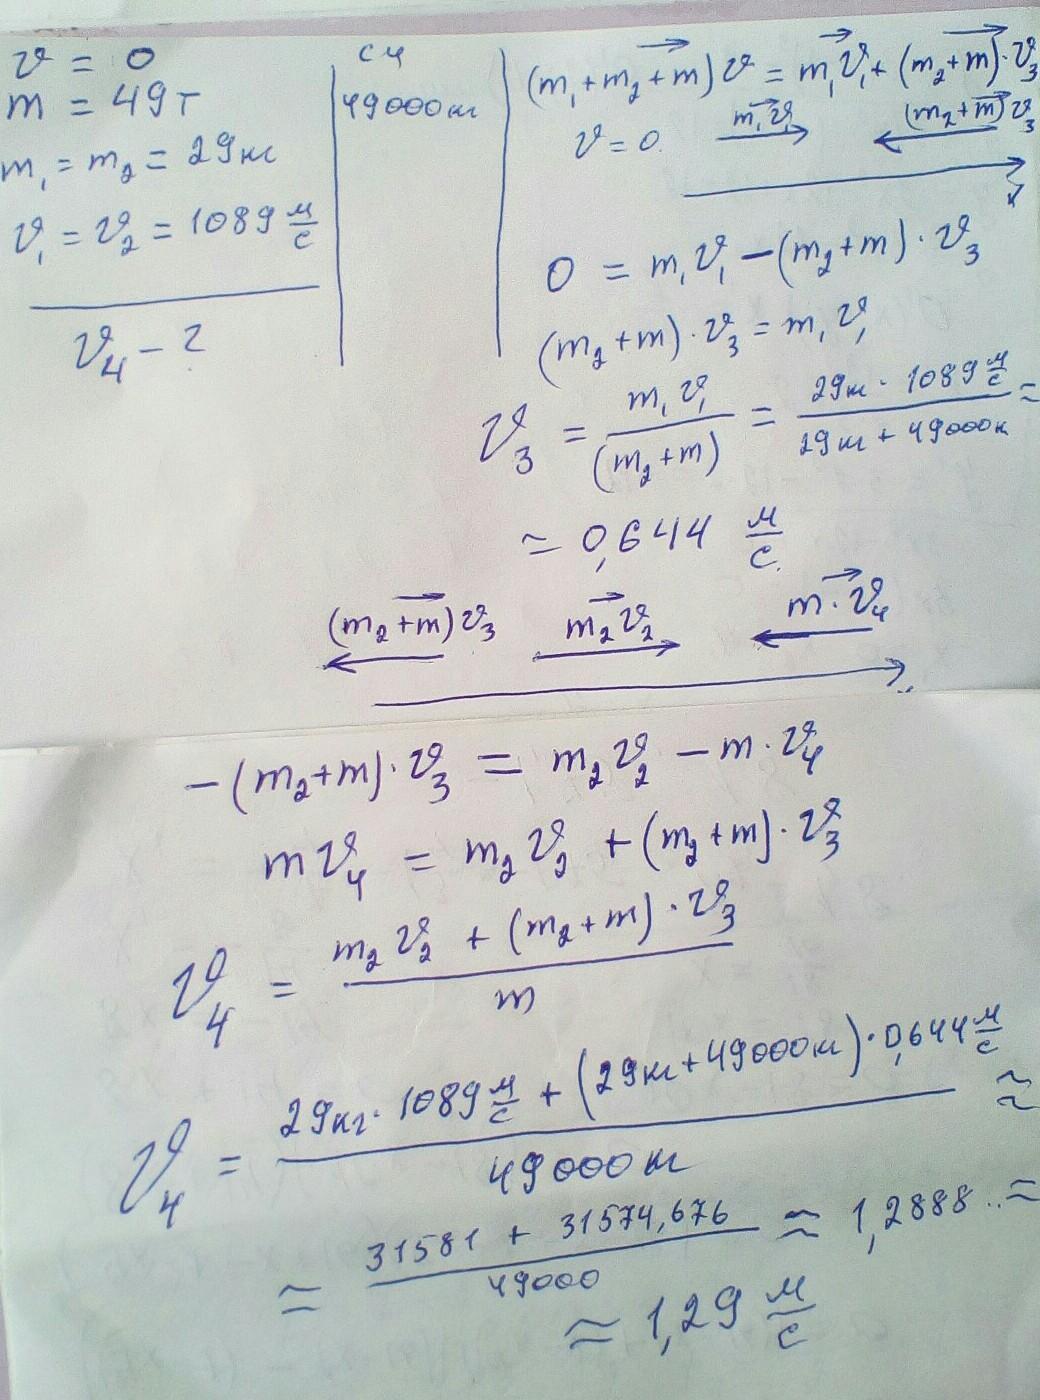 υ = 0
m = 49т
m₁ = m₂ = 29кг
υ₁ = υ₂ = 1089 м/с
υ₄ - ?
СИ
49000кг
(m₁ + m₂ + m) υ = m₁υ₁ + (m₂ + m) · υ₃
υ = 0. m₁υ₁ (m₂ + m) υ₃
0 = m₁υ₁ - (m₂ + m) · υ₃
(m₂ + m) · υ₃ = m₁υ₁
υ₃ = m₁υ₁ / (m₂ + m) = 29кг · 1089 м/с / 29кг + 49000к ≈
≈ 0,644 м/с.
(m₂ + m) υ₃ m₂υ₂ m · υ₄
-(m₂ + m) · υ₃ = m₂υ₂ - m · υ₄
mυ₄ = m₂υ₂ + (m₂ + m) · υ₃
υ₄ = m₂υ₂ + (m₂ + m) · υ₃ / m
υ₄ = 29кг · 1089 м/с + (29кг + 49000кг) · 0,644 м/с / 49000кг ≈
≈ 31581 + 31574,676 / 49000 ≈ 1,2888.. ≈
≈ 1,29 м/с